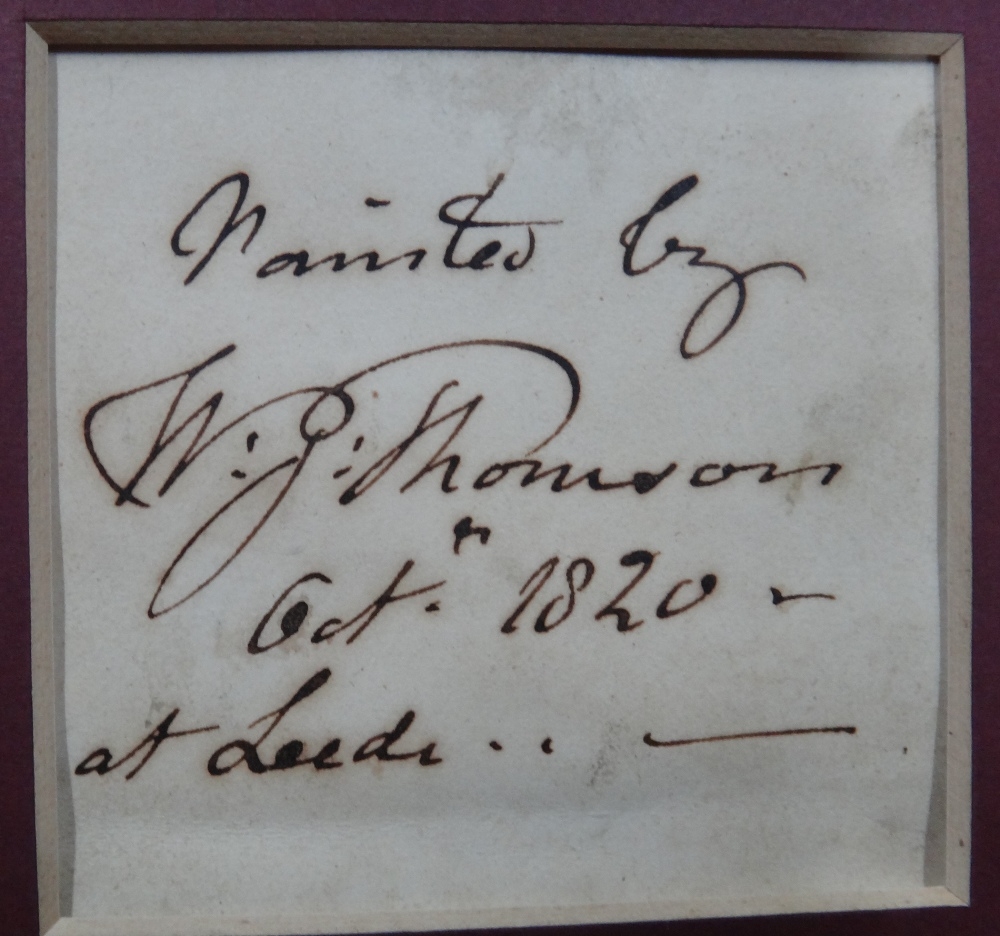 Painted by
W: J: Thomson
Octr. 1820 -
at Leeds . . —